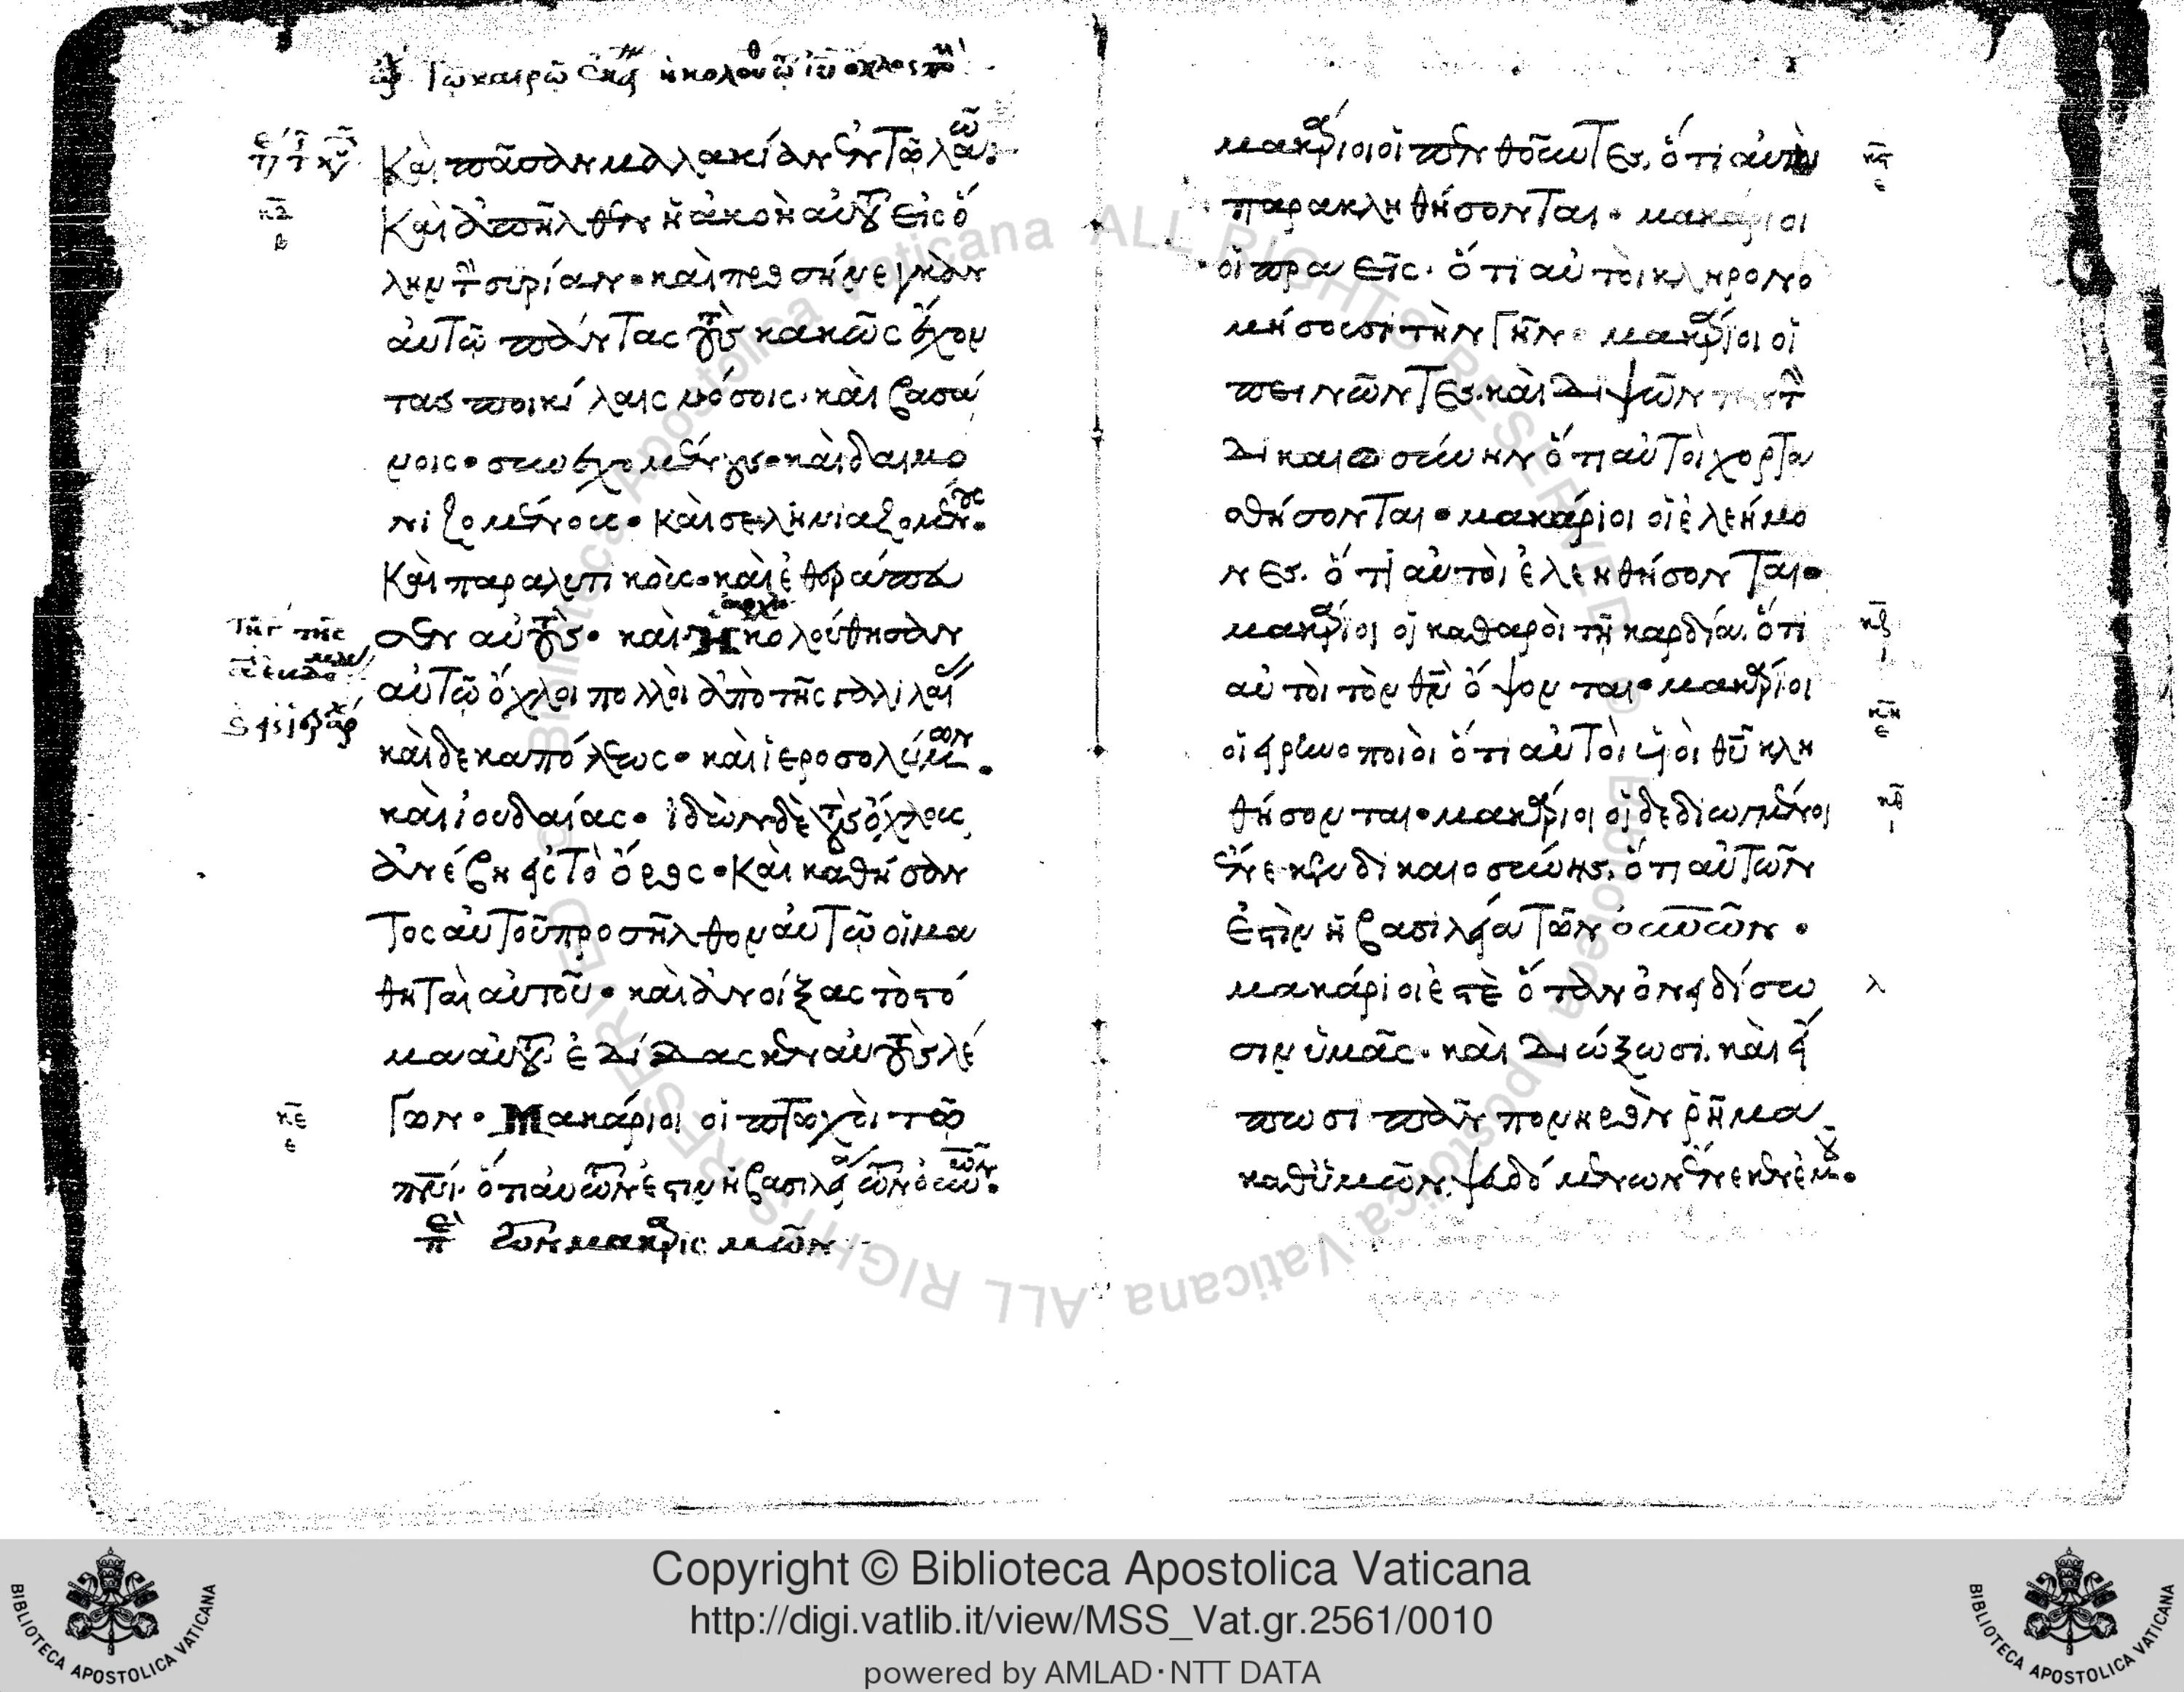 τῶ καιρῶ ἐκείνω ἠκολούθ
Καὶ πᾶσαν μαλακίαν ἐν τῶ λαῶ.
Καὶ ἀπῆλθεν ἡ ἀκοὴ αὐτοῦ εἰς ὅ
λην τὴν συρίαν· καὶ προσήνεγκαν
αὐτῶ πάντας τοὺς κακῶς ἔχον
τας ποικίλαις νόσοις· καὶ βασά
νοις· συνεχομένους· καὶ δαιμο
νιζομένους· καὶ σεληνιαζομένους·
Καὶ παραλυτικοὺς· καὶ ἐθεράπευ
σεν αὐτοὺς· καὶ ἠκολούθησαν
αὐτῶ ὄχλοι πολλοὶ ἀπὸ τῆς γαλιλαί
καὶ δεκαπόλεως· καὶ ἱεροσολύμων·
καὶ ἰουδαίας· ἰδὼν δὲ τοὺς ὄχλους
ἀνέβη εἰς τὸ ὄρος· καὶ καθήσαν
τος αὐτοῦ προσῆλθον αὐτῶ οἱ μα
θηταὶ αὐτοῦ· καὶ ἀνοίξας τὸ στό
μα αὐτοῦ ἐδίδασκεν αὐτοὺς λέ
γων· Μακάριοι οἱ πτωχοὶ τῶ
πνι· ὅτι αὐτῶν ἐστιν ἡ βασιλεία τῶν οὐνῶν·
τῶν μακαρισμῶν
μακάριοι οἱ πενθοῦντες, ὅτι αὐτοὶ
παρακληθήσονται· μακάριοι
οἱ πραεῖς· ὅτι αὐτοὶ κληρονο
μήσουσι τὴν γῆν· μακάριοι οἱ
πεινῶντες καὶ διψῶντες τὴν
δικαιοσύνην ὅτι αὐτοὶ χορτα
σθήσονται· μακάριοι οἱ ἐλεήμο
νες· ὅτι αὐτοὶ ἐλεηθήσονται·
μακάριοι οἱ καθαροὶ τῆ καρδία· ὅτι
αὐτοὶ τὸν θν ὄψονται· μακάριοι
οἱ εἰρηνοποιοὶ ὅτι αὐτοὶ υἱοὶ θυ κλη
θήσονται· μακάριοι οἱ δεδιωγμένοι
ἕνεκεν δικαιοσύνης, ὅτι αὐτῶν
ἐστὶν ἡ βασιλεία τῶν οὐνῶν·
μακάριοι ἐστὲ ὅταν ὀνειδίσω
σιν ὑμᾶς· καὶ διώξωσι· καὶ εἴ
πωσι πᾶν πονηρὸν ῥῆμα
καθ' ὑμῶν ψευδόμενοι ἕνεκεν ἐμοῦ·
κδ
β
κε
ε
κς
ε
κζ
ι
κη
ε
κθ
ι
λ
Copyright © Biblioteca Apostolica Vaticana
http://digi.vatlib.it/view/MSS_Vat.gr.2561/0010
powered by AMLAD·NTT DATA
BIBLIOTECA APOSTOLICA VATICANA
BIBLIOTECA APOSTOLICA VATICANA